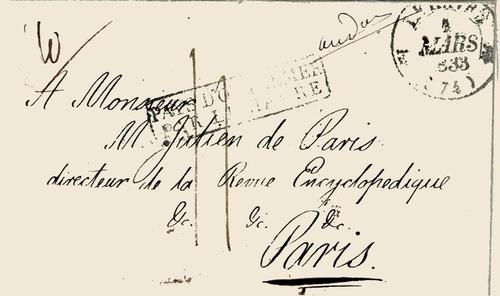 LE HAVRE
4
MARS
1833
(74)
PAYS D'OUTREMER
PAR LE HAVRE
A Monsieur
M. Julien de Paris
directeur de la Revue Encyclopedique
&c. &c. &c.
Paris.